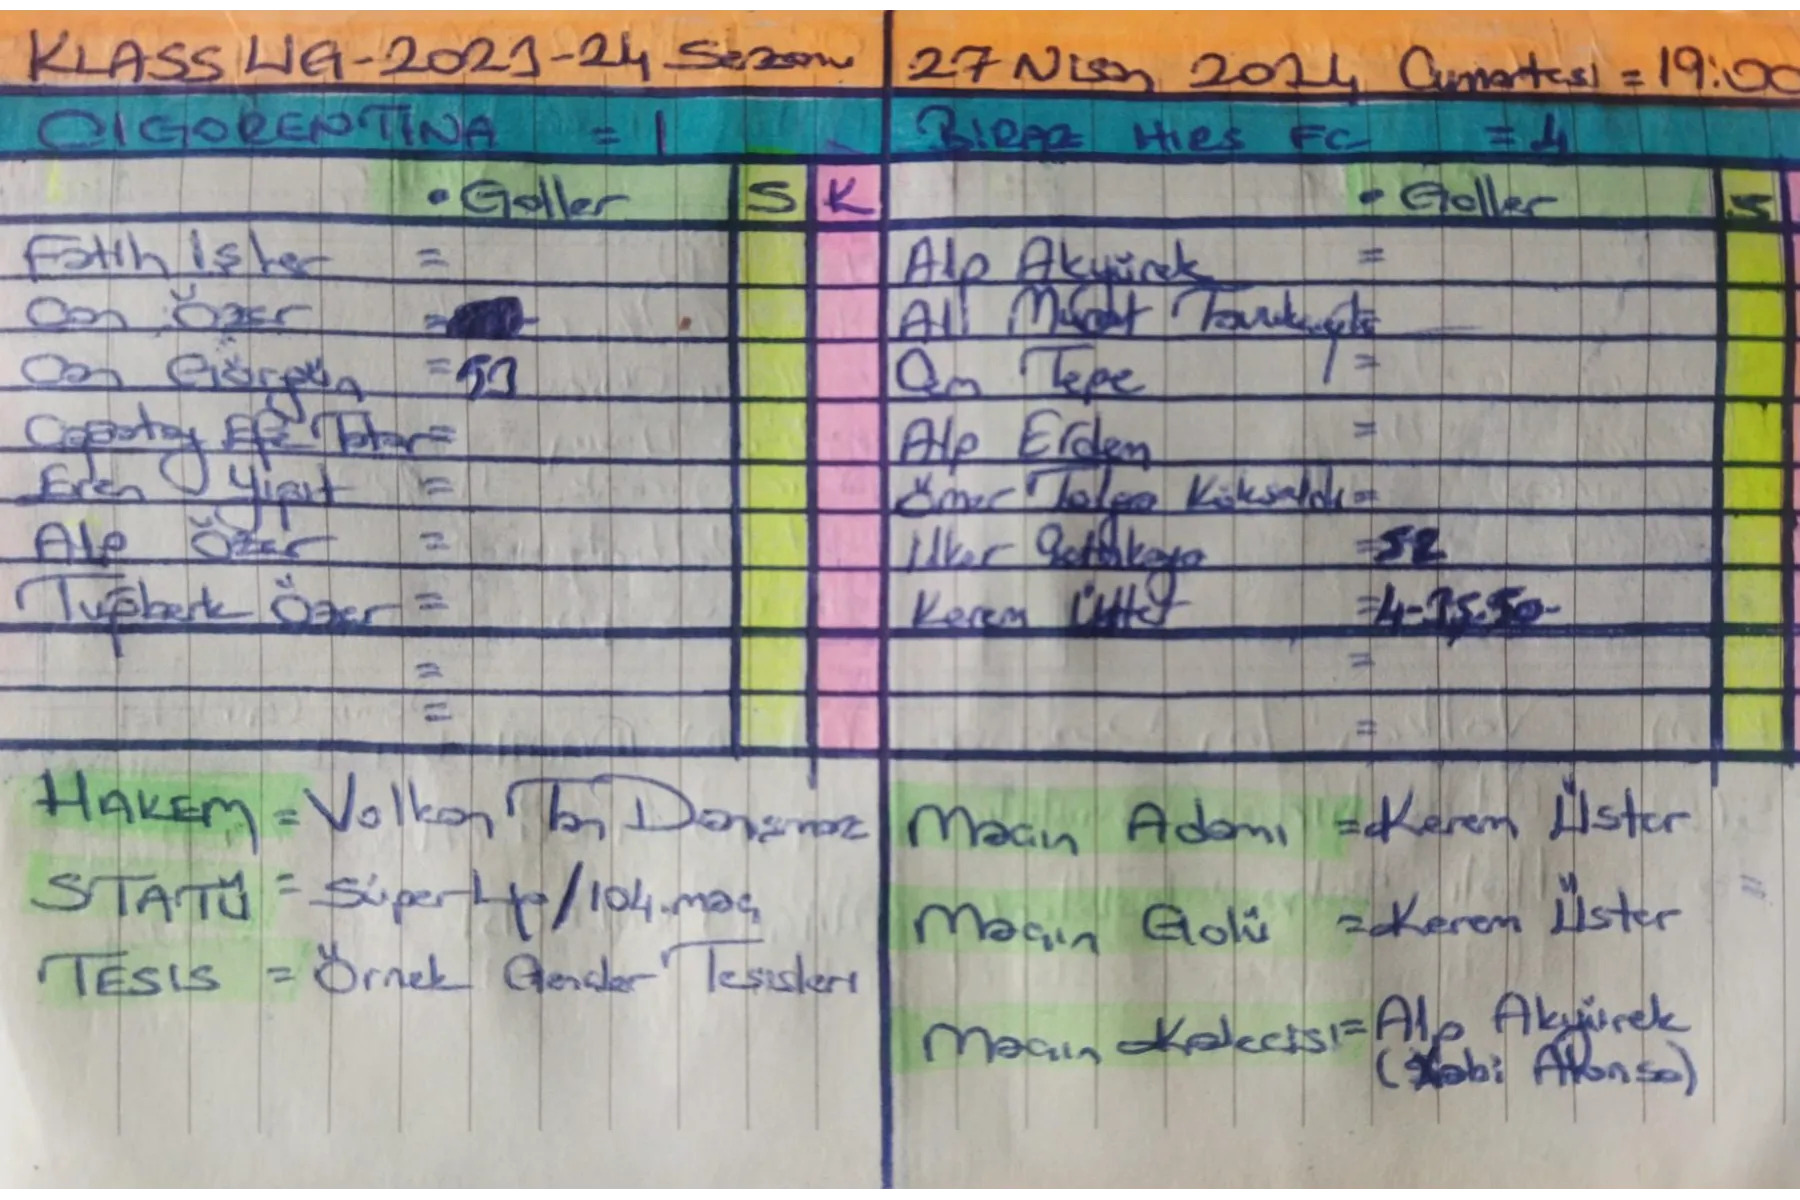 KLASS LİG-2023-24 Sezonu
27 Nisan 2024 Cumartesi = 19:00
CIGORENTINA = 1
BİRAZ HIRS FC = 4
• Goller S K
• Goller S
Fatih İşler =
Can Özer =
Can Görgün = 53
Çağatay Efe Tatar =
Eren Yiğit =
Alp Özer =
Tuğberk Özer =
=
=
Alp Akyürek =
Ali Murat =
Cem Tepe =
Alp Erdem =
Ömer Tolga Köksaldı =
İlker = 52
Kerem Üster = 4-35-50-
=
=
HAKEM = Volkan Tan Danışmaz
STATÜ = Süper Lig/104.maç
TESİS = Örnek Gençler Tesisleri
Maçın Adamı = Kerem Üster
Maçın Golü = Kerem Üster
=
Maçın Kalecisi = Alp Akyürek
(Xabi Alonso)